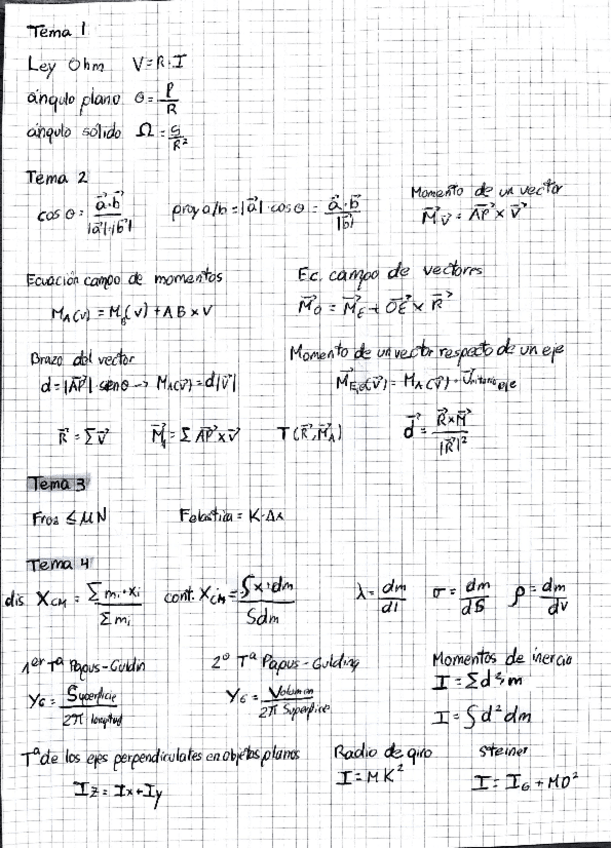 Tema 1
Ley Ohm V = R · I
ángulo plano θ = P/R
ángulo sólido Ω = S/R²
Tema 2
cos θ = a⃗·b⃗ / |a⃗|·|b⃗|
proy a/b = |a⃗|·cos θ = a⃗·b⃗ / |b⃗|
Momento de un vector
M⃗v⃗ = AP⃗ × V⃗
Ecuación campo de momentos
M_A(v) = M_B(v) + AB × V
Ec. campo de vectores
M⃗_O = M⃗_E + OE⃗ × R⃗
Brazo del vector
d = |AP⃗| · sen θ → M_A(v⃗) = d|v⃗|
Momento de un vector respecto de un eje
M⃗_Eje(v⃗) = M_A(v⃗) · U⃗nitario eje
R⃗ = Σ v⃗ M⃗_A = Σ AP⃗ × v⃗ T(R⃗, M⃗_A) d⃗ = R⃗×M⃗ / |R⃗|²
Tema 3
Froz ≤ μN Felástica = K·Δx
Tema 4
dis. X_CM = Σ mi·xi / Σ mi cont. X_CM = ∫x·dm / ∫dm λ = dm/dl σ = dm/dS ρ = dm/dv
1er Tª Papus-Guldin
Y_G = Superficie / 2π longitud
2º Tª Papus-Gulding
Y_G = Volumen / 2π Superficie
Momentos de inercia
I = Σ d² m
I = ∫ d² dm
Tª de los ejes perpendiculares en objetos planos
Iz = Ix + Iy
Radio de giro
I = MK²
Steiner
I = I_G + MD²